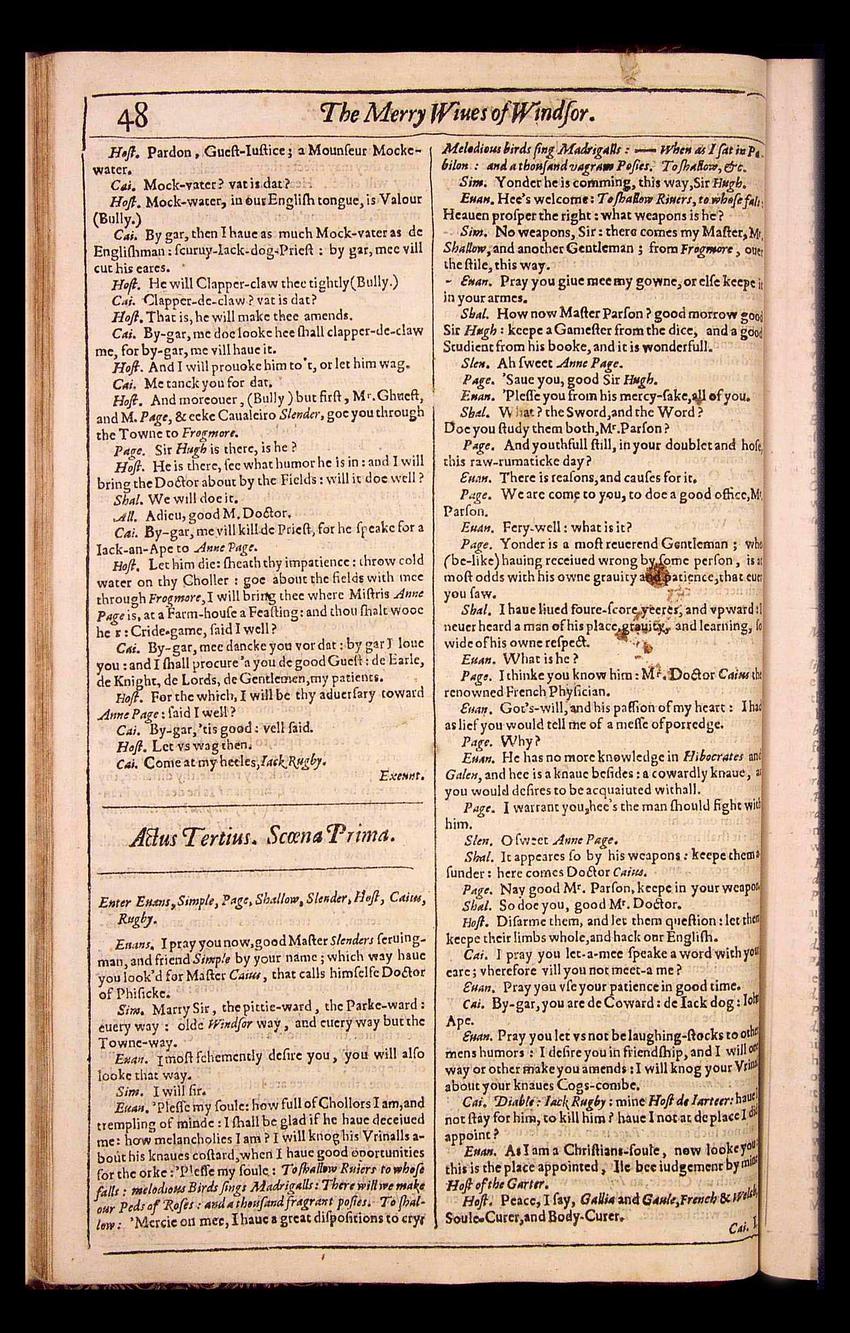 48
The Merry Wiues of Windſor.
Hoſt. Pardon, Gueſt-Iuſtice; a Mounſeur Mocke-
water.
Cai. Mock-vater? vat is dat?
Hoſt. Mock-water, in our Engliſh tongue, is Valour
(Bully.)
Cai. By gar, then I haue as much Mock-vater as de
Engliſhman: ſcuruy-Iack-dog-Prieſt : by gar, mee vill
cut his eares.
Hoſt. He will Clapper-claw thee tightly(Bully.)
Cai. Clapper-de-claw? vat is dat?
Hoſt. That is, he will make thee amends.
Cai. By-gar, me doe looke hee ſhall clapper-de-claw
me, for by-gar, me vill haue it.
Hoſt. And I will prouoke him to't, or let him wag.
Cai. Me tanck you for dat.
Hoſt. And moreouer, (Bully) but firſt, Mr. Ghueſt,
and M. Page, & eeke Caualeiro Slender, goe you through
the Towne to Frogmore.
Page. Sir Hugh is there, is he?
Hoſt. He is there, ſee what humor he is in: and I will
bring the Doctor about by the Fields: will it doe well?
Shal. We will doe it.
All. Adieu, good M. Doctor.
Cai. By-gar, me vill kill de Prieſt, for he ſpeake for a
Iack-an-Ape to Anne Page.
Hoſt. Let him die: ſheath thy impatience: throw cold
water on thy Choller : goe about the fields with mee
through Frogmore, I will bring thee where Miſtris Anne
Page is, at a Farm-houſe a Feaſting: and thou ſhalt wooe
her: Cride-game, ſaid I well?
Cai. By-gar, mee dancke you vor dat: by gar I loue
you: and I ſhall procure 'a you de good Gueſt: de Earle,
de Knight, de Lords, de Gentlemen, my patients.
Hoſt. For the which, I will be thy aduerſary toward
Anne Page: ſaid I well?
Cai. By-gar, 'tis good: vell ſaid.
Hoſt. Let vs wag then.
Cai. Come at my heeles, Iack Rugby.
Exeunt.
Actus Tertius. Scœna Prima.
Enter Euans, Simple, Page, Shallow, Slender, Hoſt, Caius,
Rugby.
Euans. I pray you now, good Maſter Slenders ſeruing-
man, and friend Simple by your name; which way haue
you look'd for Maſter Caius, that calls himſelfe Doctor
of Phiſicke.
Sim. Marry Sir, the pittie-ward, the Parke-ward:
euery way : olde Windſor way, and euery way but the
Towne-way.
Euan. I moſt fehemently deſire you, you will alſo
looke that way.
Sim. I will ſir.
Euan. 'Pleſſe my ſoule: how full of Chollors I am, and
trempling of minde: I ſhall be glad if he haue deceiued
me: how melancholies I am? I will knog his Vrinalls a-
bout his knaues coſtard, when I haue good oportunities
for the orke: 'Pleſſe my ſoule: To ſhallow Ruiers to whoſe
falls: melodious Birds ſings Madrigalls: There will we make
our Peds of Roſes: and a thouſand fragrant poſies. To ſhal-
low: 'Mercie on mee, I haue a great diſpoſitions to cry.
Melodious birds ſing Madrigalls: — When as I ſat in Pa-
bilon: and a thouſand vagram Poſies. To ſhallow, &c.
Sim. Yonder he is comming, this way, Sir Hugh.
Euan. Hee's welcome: To ſhallow Riuers, to whoſe fals:
Heauen proſper the right: what weapons is he?
Sim. No weapons, Sir: there comes my Maſter, Mr.
Shallow, and another Gentleman; from Frogmore, ouer
the ſtile, this way.
Euan. Pray you giue mee my gowne, or elſe keepe it
in your armes.
Shal. How now Maſter Parſon? good morrow good
Sir Hugh: keepe a Gameſter from the dice, and a good
Studient from his booke, and it is wonderfull.
Slen. Ah ſweet Anne Page.
Page. 'Saue you, good Sir Hugh.
Euan. 'Pleſſe you from his mercy-ſake, all of you.
Shal. What? the Sword, and the Word?
Doe you ſtudy them both, Mr. Parſon?
Page. And youthfull ſtill, in your doublet and hoſe,
this raw-rumaticke day?
Euan. There is reaſons, and cauſes for it.
Page. We are come to you, to doe a good office, Mr.
Parſon.
Euan. Fery-well: what is it?
Page. Yonder is a moſt reuerend Gentleman; who
(be-like) hauing receiued wrong by ſome perſon, is at
moſt odds with his owne grauity and patience, that euer
you ſaw.
Shal. I haue liued foure-ſcore yeeres, and vpward: I
neuer heard a man of his place, grauity, and learning, ſo
wide of his owne reſpect.
Euan. What is he?
Page. I thinke you know him: Mr. Doctor Caius the
renowned French Phyſician.
Euan. Got's-will, and his paſſion of my heart: I had
as lief you would tell me of a meſſe of porredge.
Page. Why?
Euan. He has no more knowledge in Hibocrates and
Galen, and hee is a knaue beſides: a cowardly knaue, as
you would deſires to be acquaiuted withall.
Page. I warrant you, hee's the man ſhould fight with
him.
Slen. O ſweet Anne Page.
Shal. It appeares ſo by his weapons: keepe them a-
ſunder: here comes Doctor Caius.
Page. Nay good Mr. Parſon, keepe in your weapon.
Shal. So doe you, good Mr. Doctor.
Hoſt. Diſarme them, and let them queſtion: let them
keepe their limbs whole, and hack our Engliſh.
Cai. I pray you let-a-mee ſpeake a word with your
eare; vherefore vill you not meet-a me?
Euan. Pray you vſe your patience in good time.
Cai. By-gar, you are de Coward: de Iack dog: Iohn
Ape.
Euan. Pray you let vs not be laughing-ſtocks to other
mens humors : I deſire you in friendſhip, and I will one
way or other make you amends: I will knog your Vrinal
about your knaues Cogs-combe.
Cai. Diable: Iack Rugby: mine Hoſt de Iarteer: haue I
not ſtay for him, to kill him? haue I not at de place I did
appoint?
Euan. As I am a Chriſtians-ſoule, now looke you:
this is the place appointed, Ile bee iudgement by mine
Hoſt of the Garter.
Hoſt. Peace, I ſay, Gallia and Gaule, French & Welch,
Soule-Curer, and Body-Curer.
Cai. I